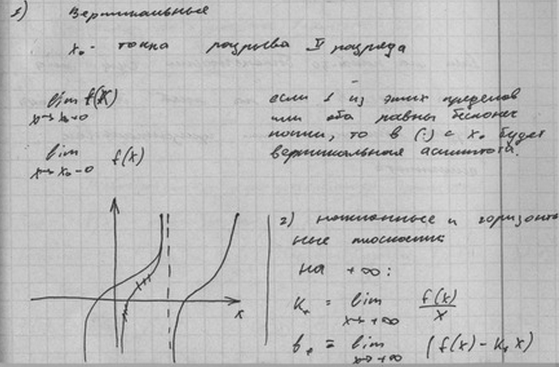 1) Вертикальные
x₀ - точка разрыва II разряда
lim f(x)
x→x₀+0
lim f(x)
x→x₀-0
если 1 из этих пределов
или оба равны бесконеч
ности, то в (·) с x₀ будет
вертикальная асимптота.
x
2) наклонные и горизонталь
ные
на +∞:
K₊ = lim f(x)/x
x→+∞
b₊ = lim (f(x) - K₊x)
x→+∞